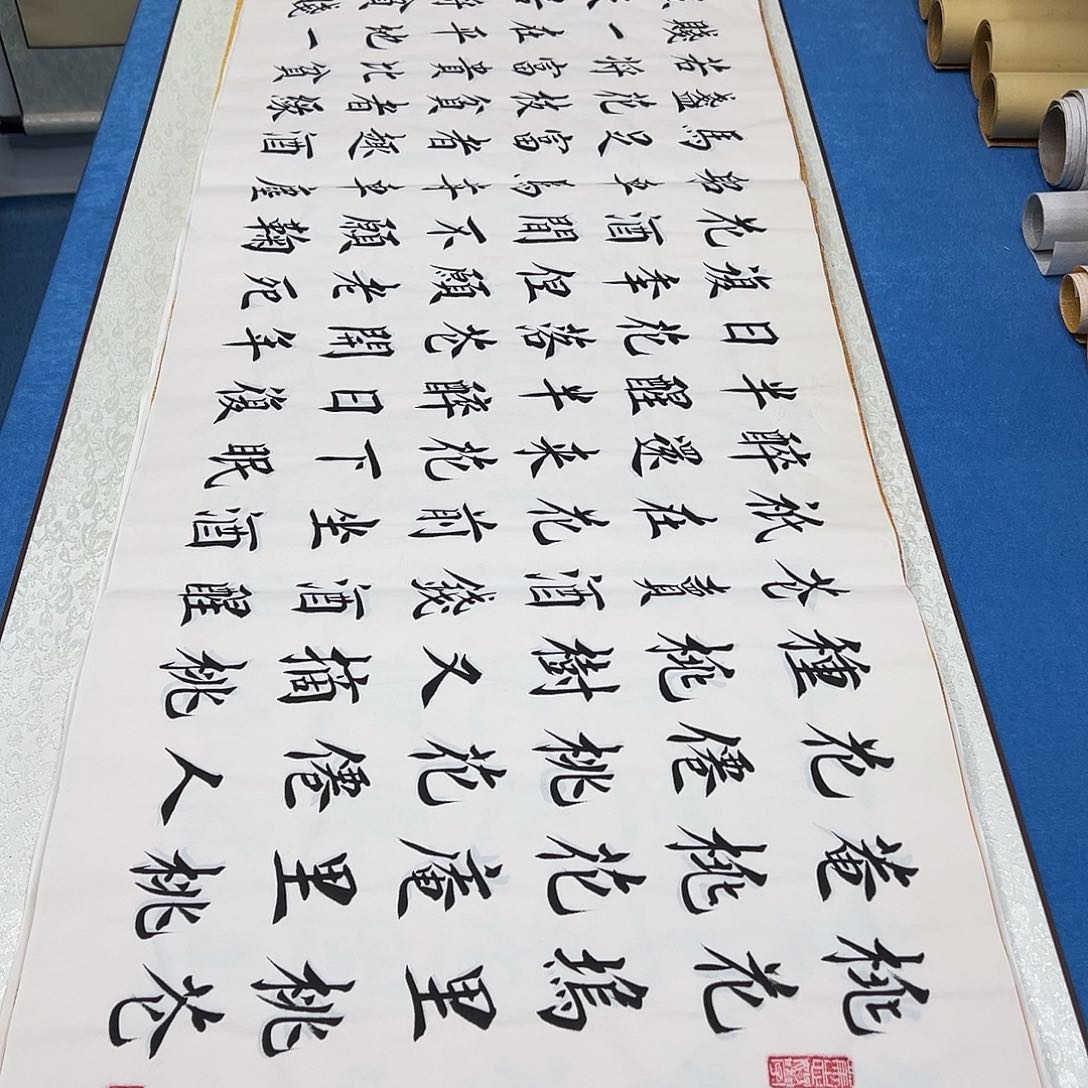 桃花塢里桃花
庵桃花庵里桃
花僊桃花僊人
種桃樹又摘桃
花賣酒錢酒醒
祇在花前坐酒
醉還來花下眠
半醒半醉日復
日花落花開年
復年但願老死
花酒間不願鞠
躬車馬前車塵
馬足富者趣酒
盞花枝貧者緣
若將富貴比貧
賤一在平地一
將貧